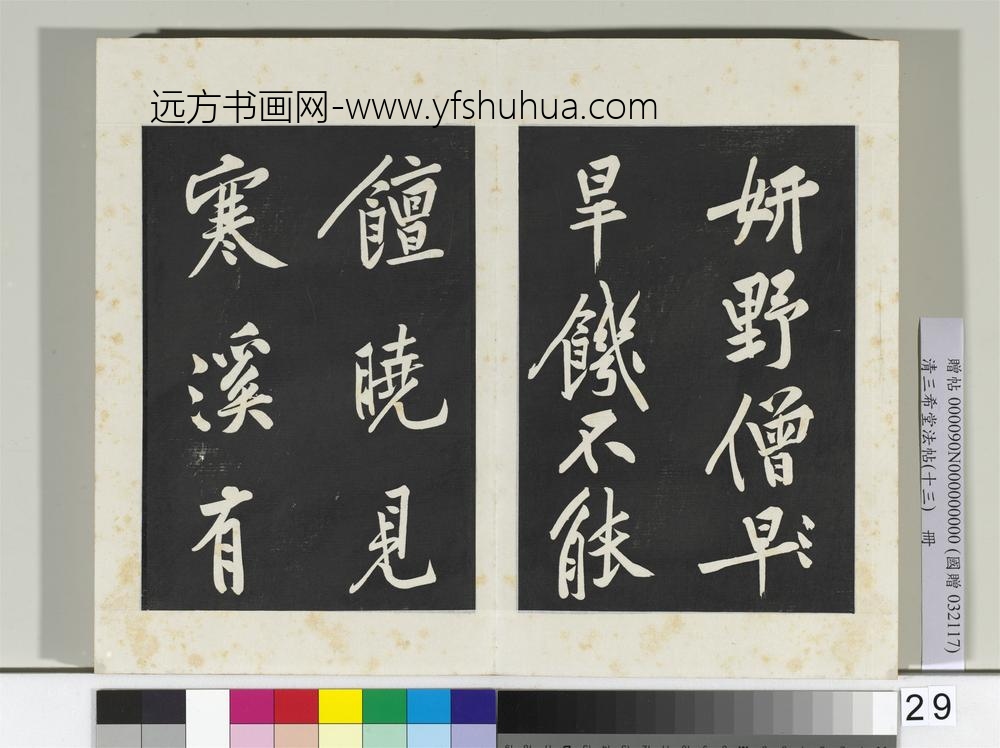 远方书画网-www.yfshuhua.com
妍野僧早
旱饑不能
饘曉見
寒溪有
贈帖 000090N000000000 (國贈 032117)
清三希堂法帖(十三) 冊
29